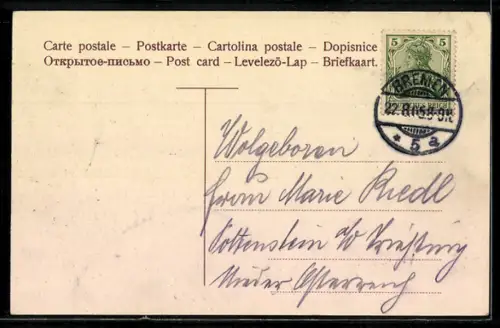 Carte postale – Postkarte – Cartolina postale – Dopisnice
Открытое-письмо – Post card – Levelező-Lap – Briefkaart.
5 5
BREMEN
22.8.05 8-9N.
* 5 a
Wolgeboren
Frau Marie Riedl
Pottenstein
Nieder Österreich